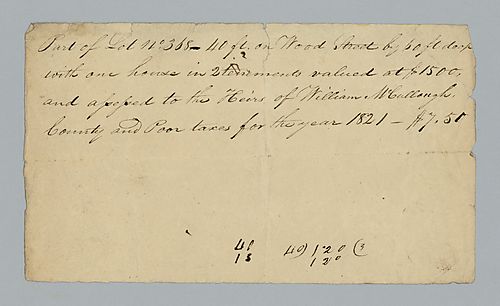 Part of Lot No 368 - 40 ft. on Wood Street by 60 ft deep
with one house in 2 tenements valued at $1500,
and assessed to the Heirs of William McCullough,
County and Poor taxes for the year 1821 - $7.50
40 40) 120 (3
15 120